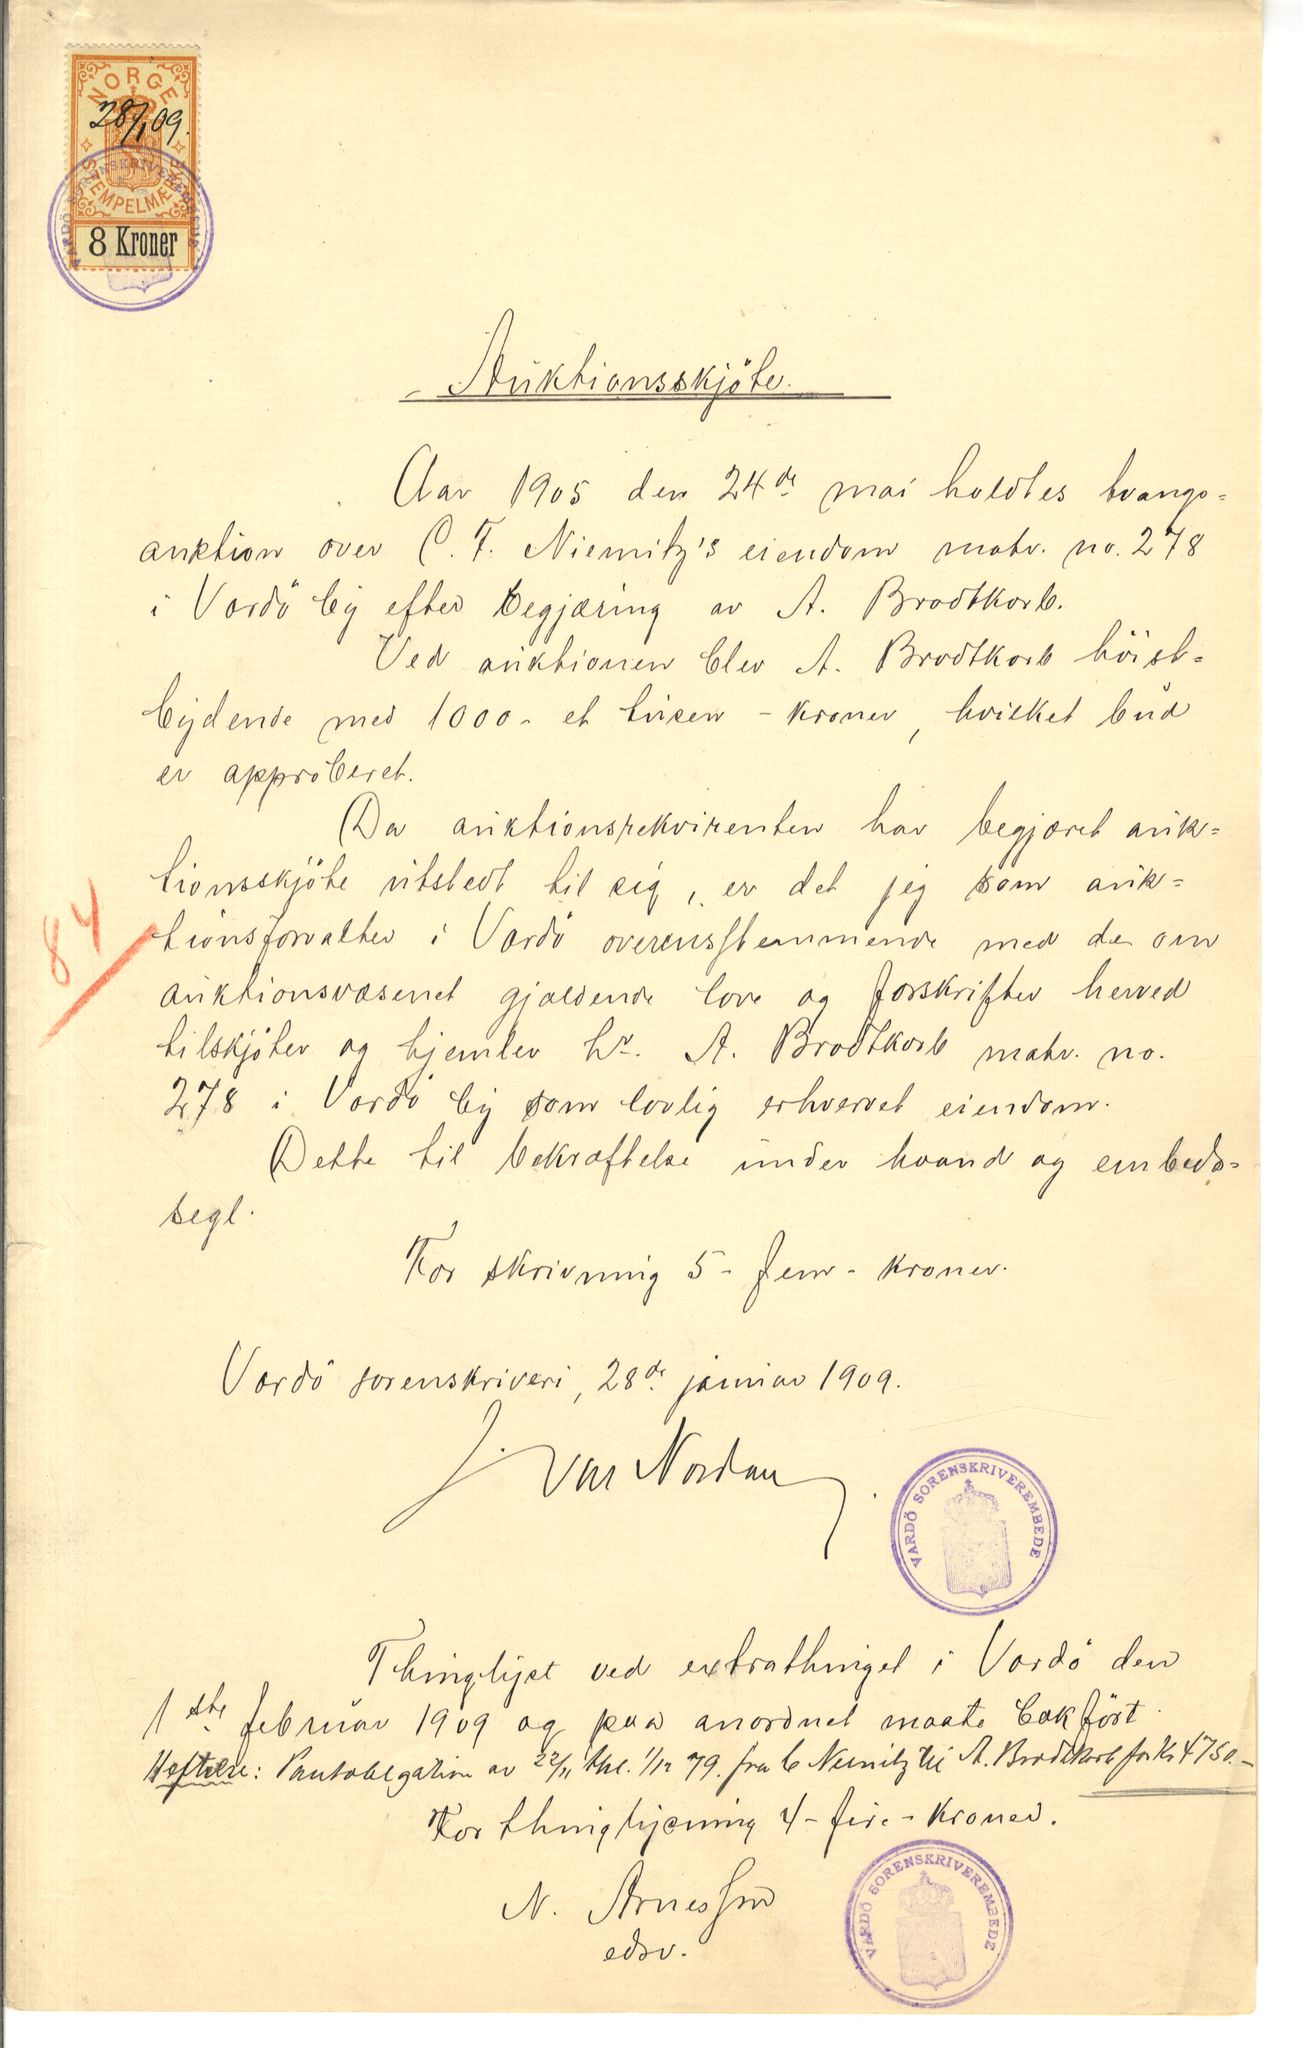 NORGE
28/1 09.
STEMPELMÆRKE
8 Kroner
VARDÖ SORENSKRIVEREMBEDE
Auktionsskjöte.
Aar 1905 den 24de mai holdtes tvangs=
auktion over C. F. Niemitz's eiendom matr. no. 278
i Vardö by efter begjæring av A. Brodtkorb.
Ved auktionen blev A. Brodtkorb höist=
bydende med 1000 - et tusen - kroner, hvilket bud
er approberet.
Da auktionsrekvirenten har begjæret auk=
tionsskjöte utstedt til sig, er det jeg som auk=
tionsforvalter i Vardö overensstemmende med de om
auktionsvæsenet gjældende love og forskrifter herved
tilskjöter og hjemler hr. A. Brodtkorb matr. no.
278 i Vardö by som lovlig erhvervet eiendom.
Dette til bekræftelse under haand og embeds=
segl.
For skrivning 5 - fem - kroner.
84
Vardö sorenskriveri, 28de januar 1909.
J. van Nordan
VARDÖ SORENSKRIVEREMBEDE
Thinglyst ved extrathinget i Vardö den
1ste februar 1909 og paa anordnet maate bokfört.
Heftelse: Pantobligation av 22/11 thl. 1/12 79. fra C Niemitz til A. Brodtkorb for Kr 4750.-
For thinglysning 4 - fire - kroner.
N. Arnesson
edsv.
VARDÖ SORENSKRIVEREMBEDE